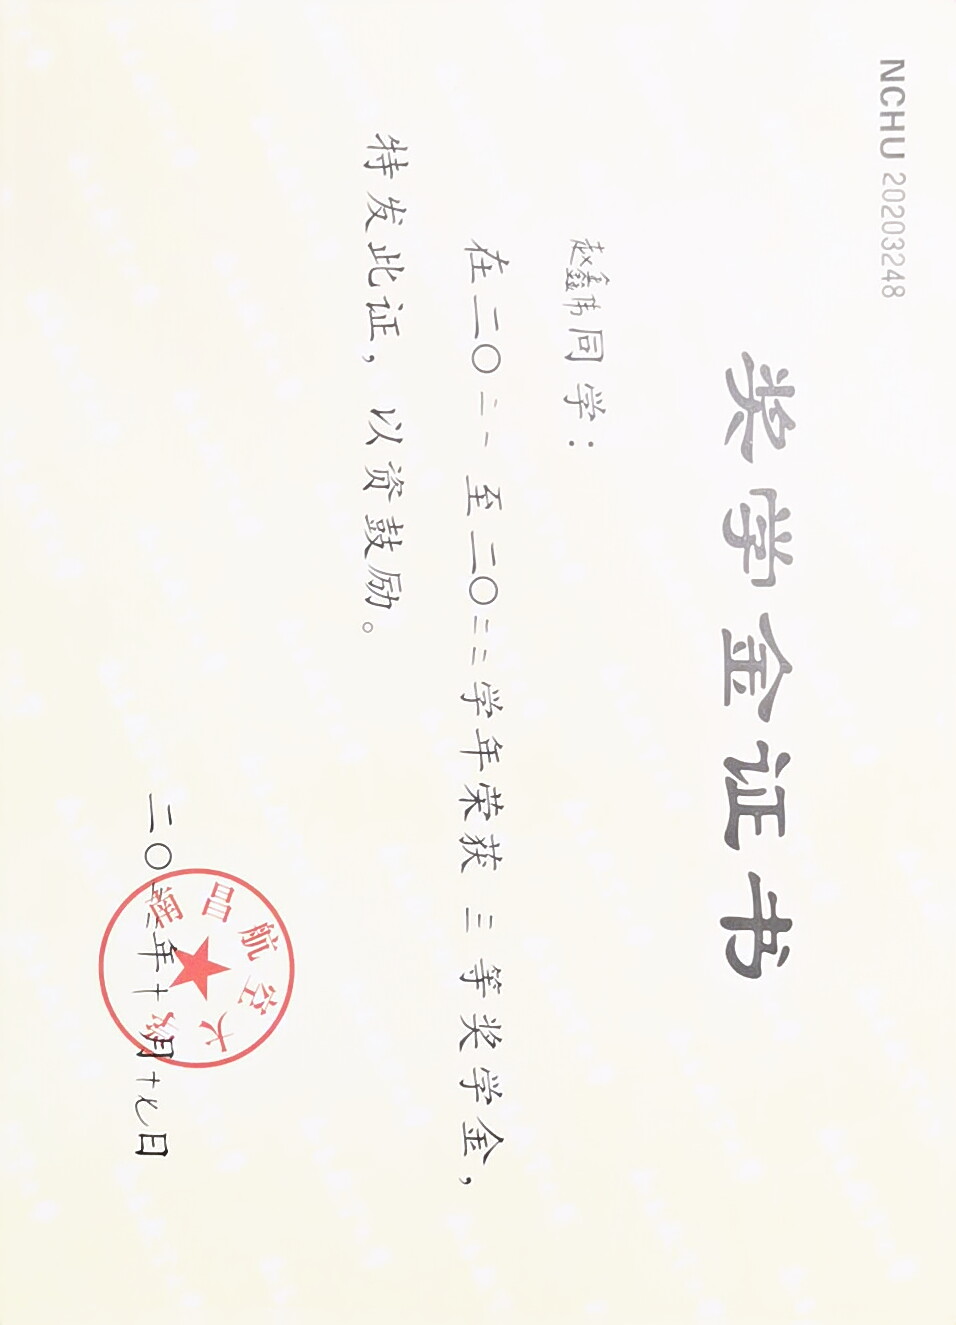 NCHU 20203248
奖学金证书
赵鑫伟同学：
在二〇二一 至二〇二二学年荣获 三 等奖学金，
特发此证，以资鼓励。
南昌航空大学
二〇二二年十月十七日